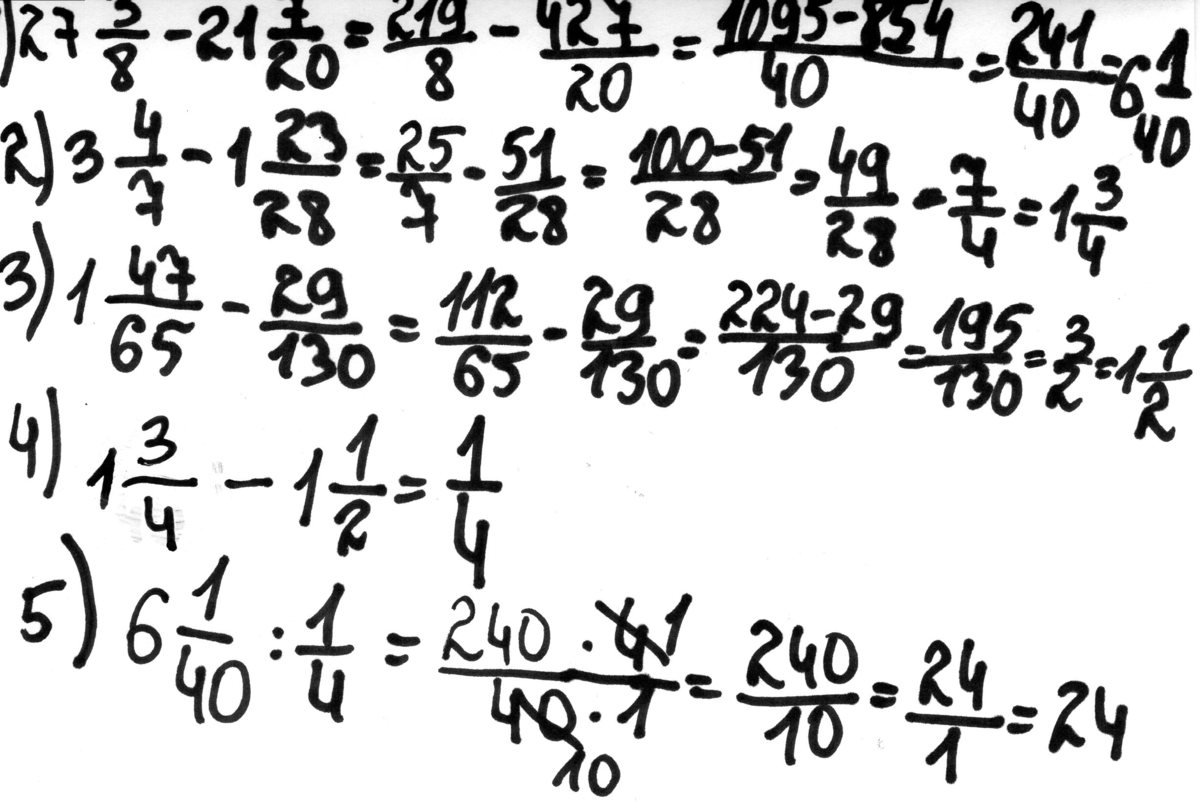 )27 3/8 - 21 7/20 = 219/8 - 427/20 = 1095-854/40 = 241/40 = 6 1/40
2) 3 4/7 - 1 23/28 = 25/7 - 51/28 = 100-51/28 = 49/28 - 7/4 = 1 3/4
3) 1 47/65 - 29/130 = 112/65 - 29/130 = 224-29/130 = 195/130 = 3/2 = 1 1/2
4) 1 3/4 - 1 1/2 = 1/4
5) 6 1/40 : 1/4 = 240 · 4 1/40 · 1 10 = 240/10 = 24/1 = 24